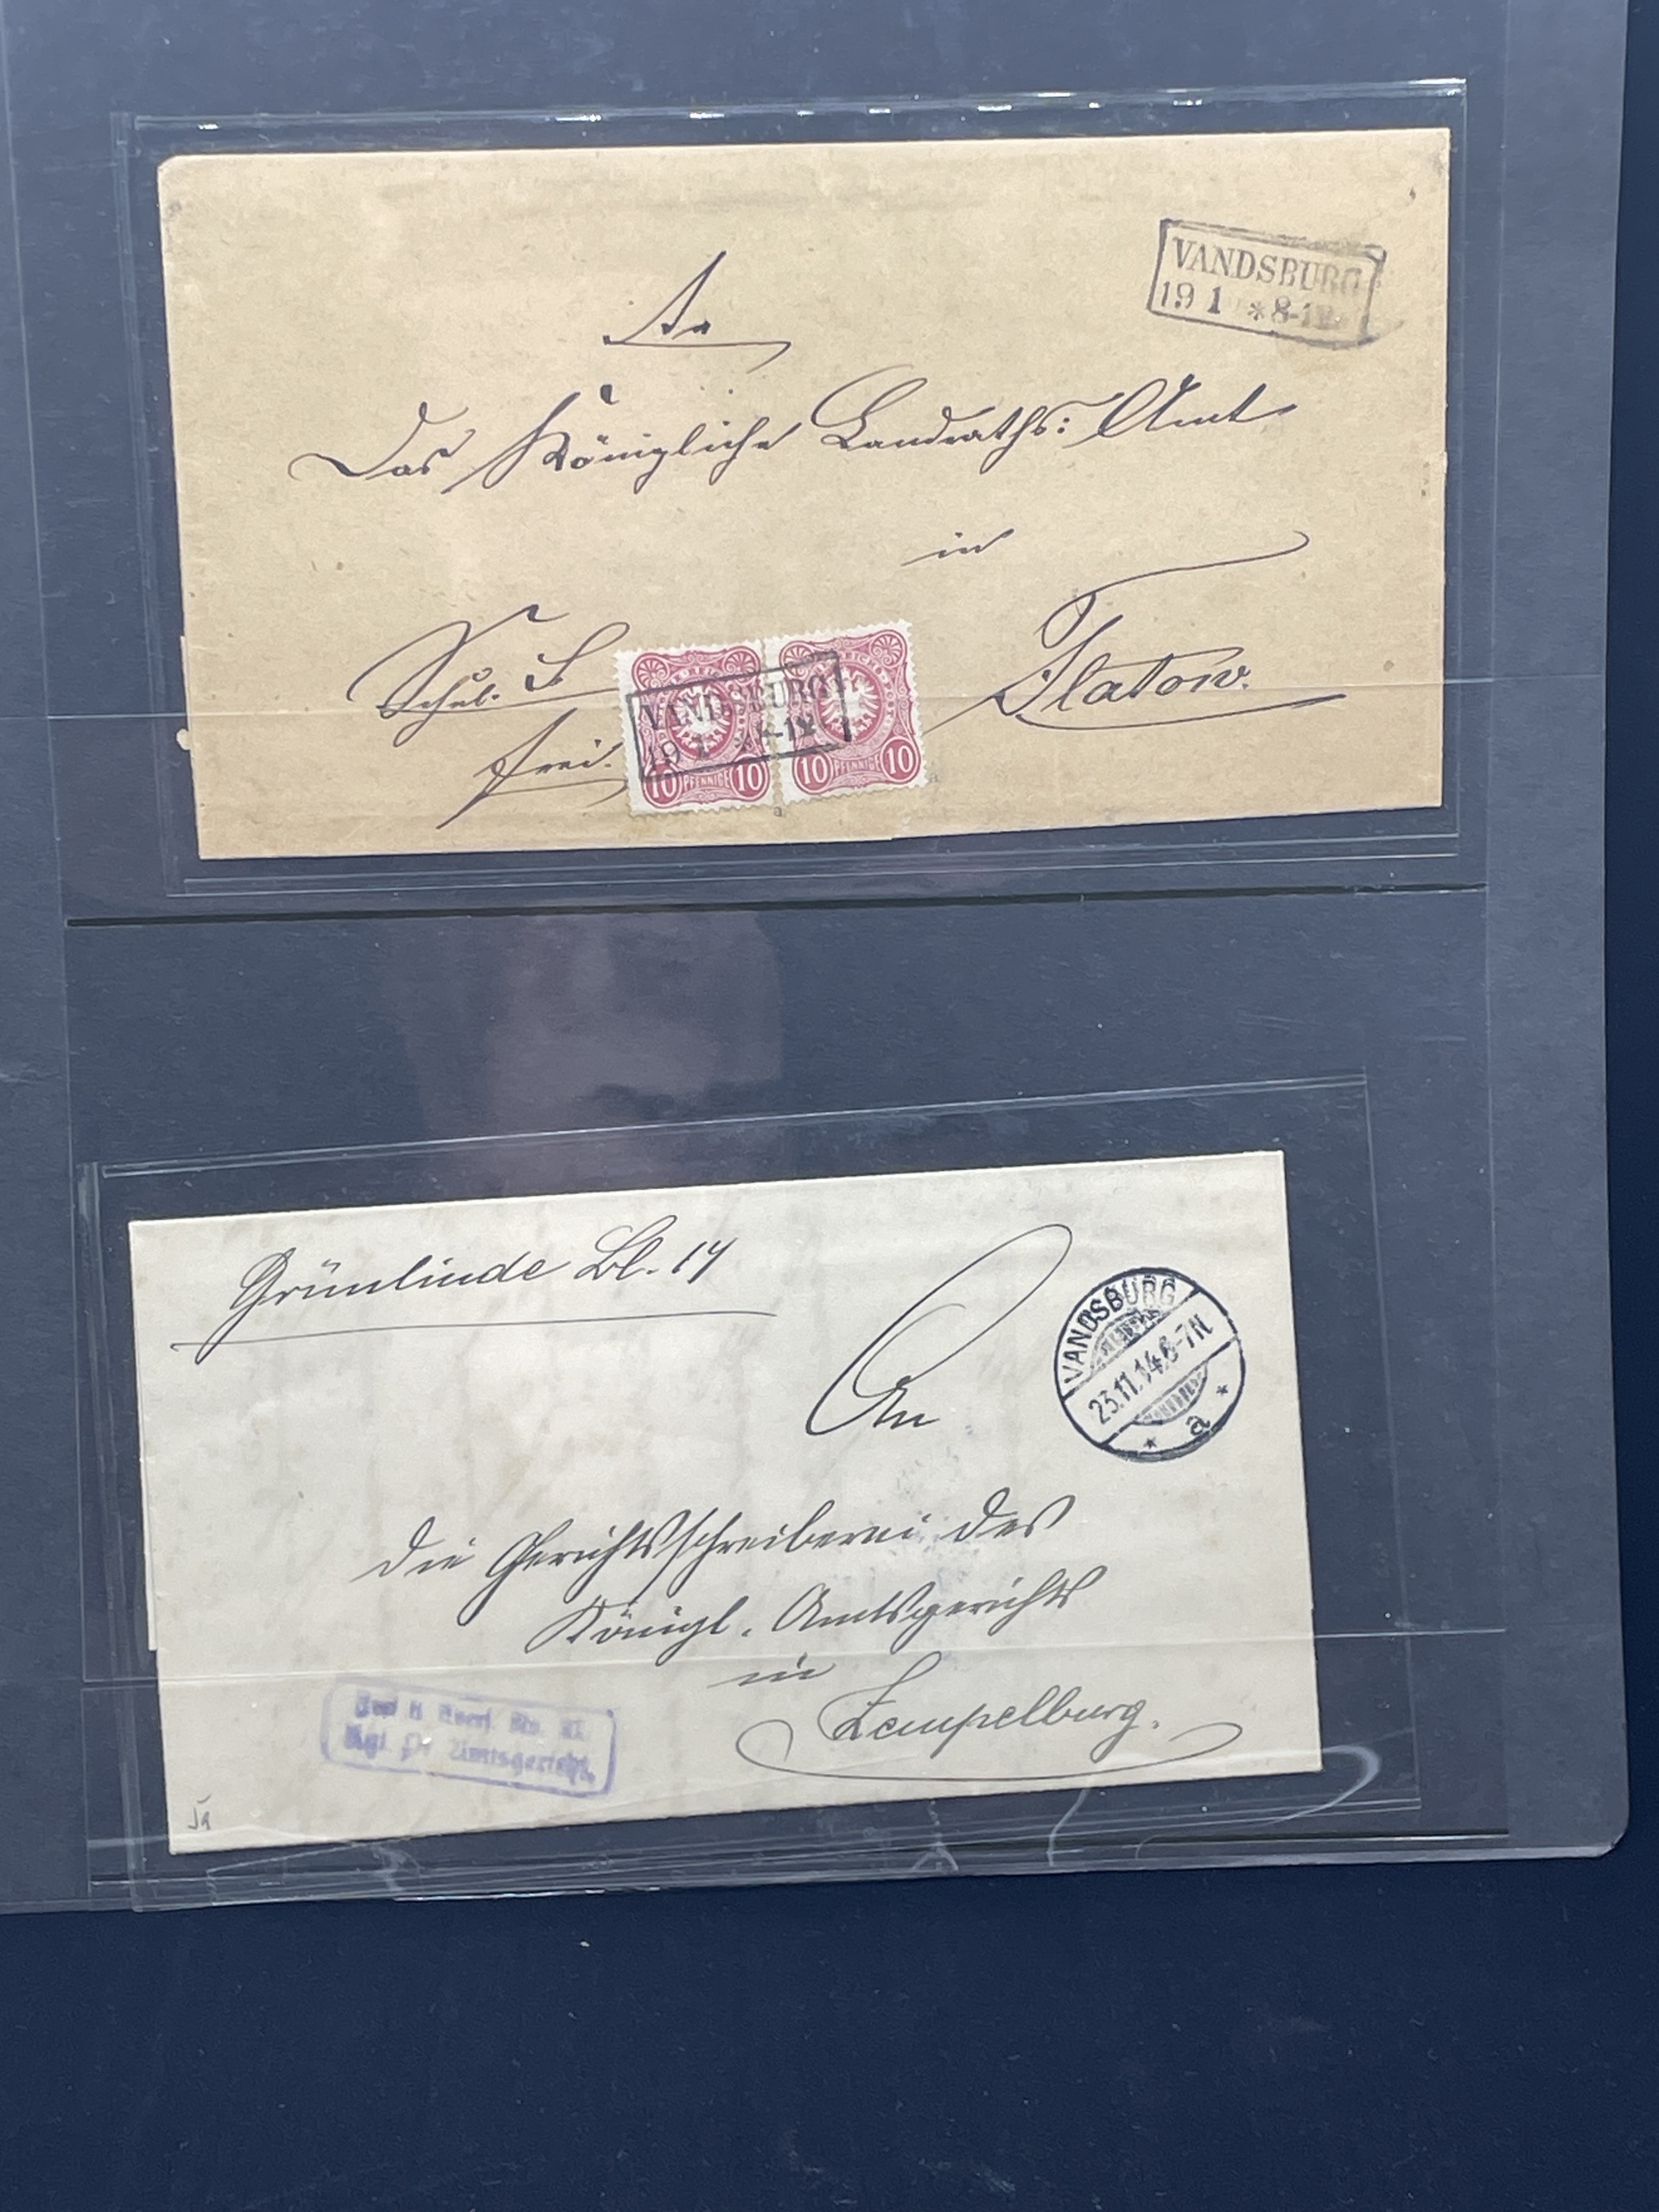 VANDSBURG
19 1 *8-12
An
Das Königliche Landraths: Amt
in
Flatow.
frei.
VANDSBURG
19 1 *8-12
10 PFENNIGE 10
10 PFENNIGE 10
Grünlinde Bl. 14
VANDSBURG
23.11.14.6-7N
* a *
An
die Gerichtsschreiberei des
Königl. Amtsgerichts
in
Zempelburg.
Kgl. Pr. Amtsgericht.